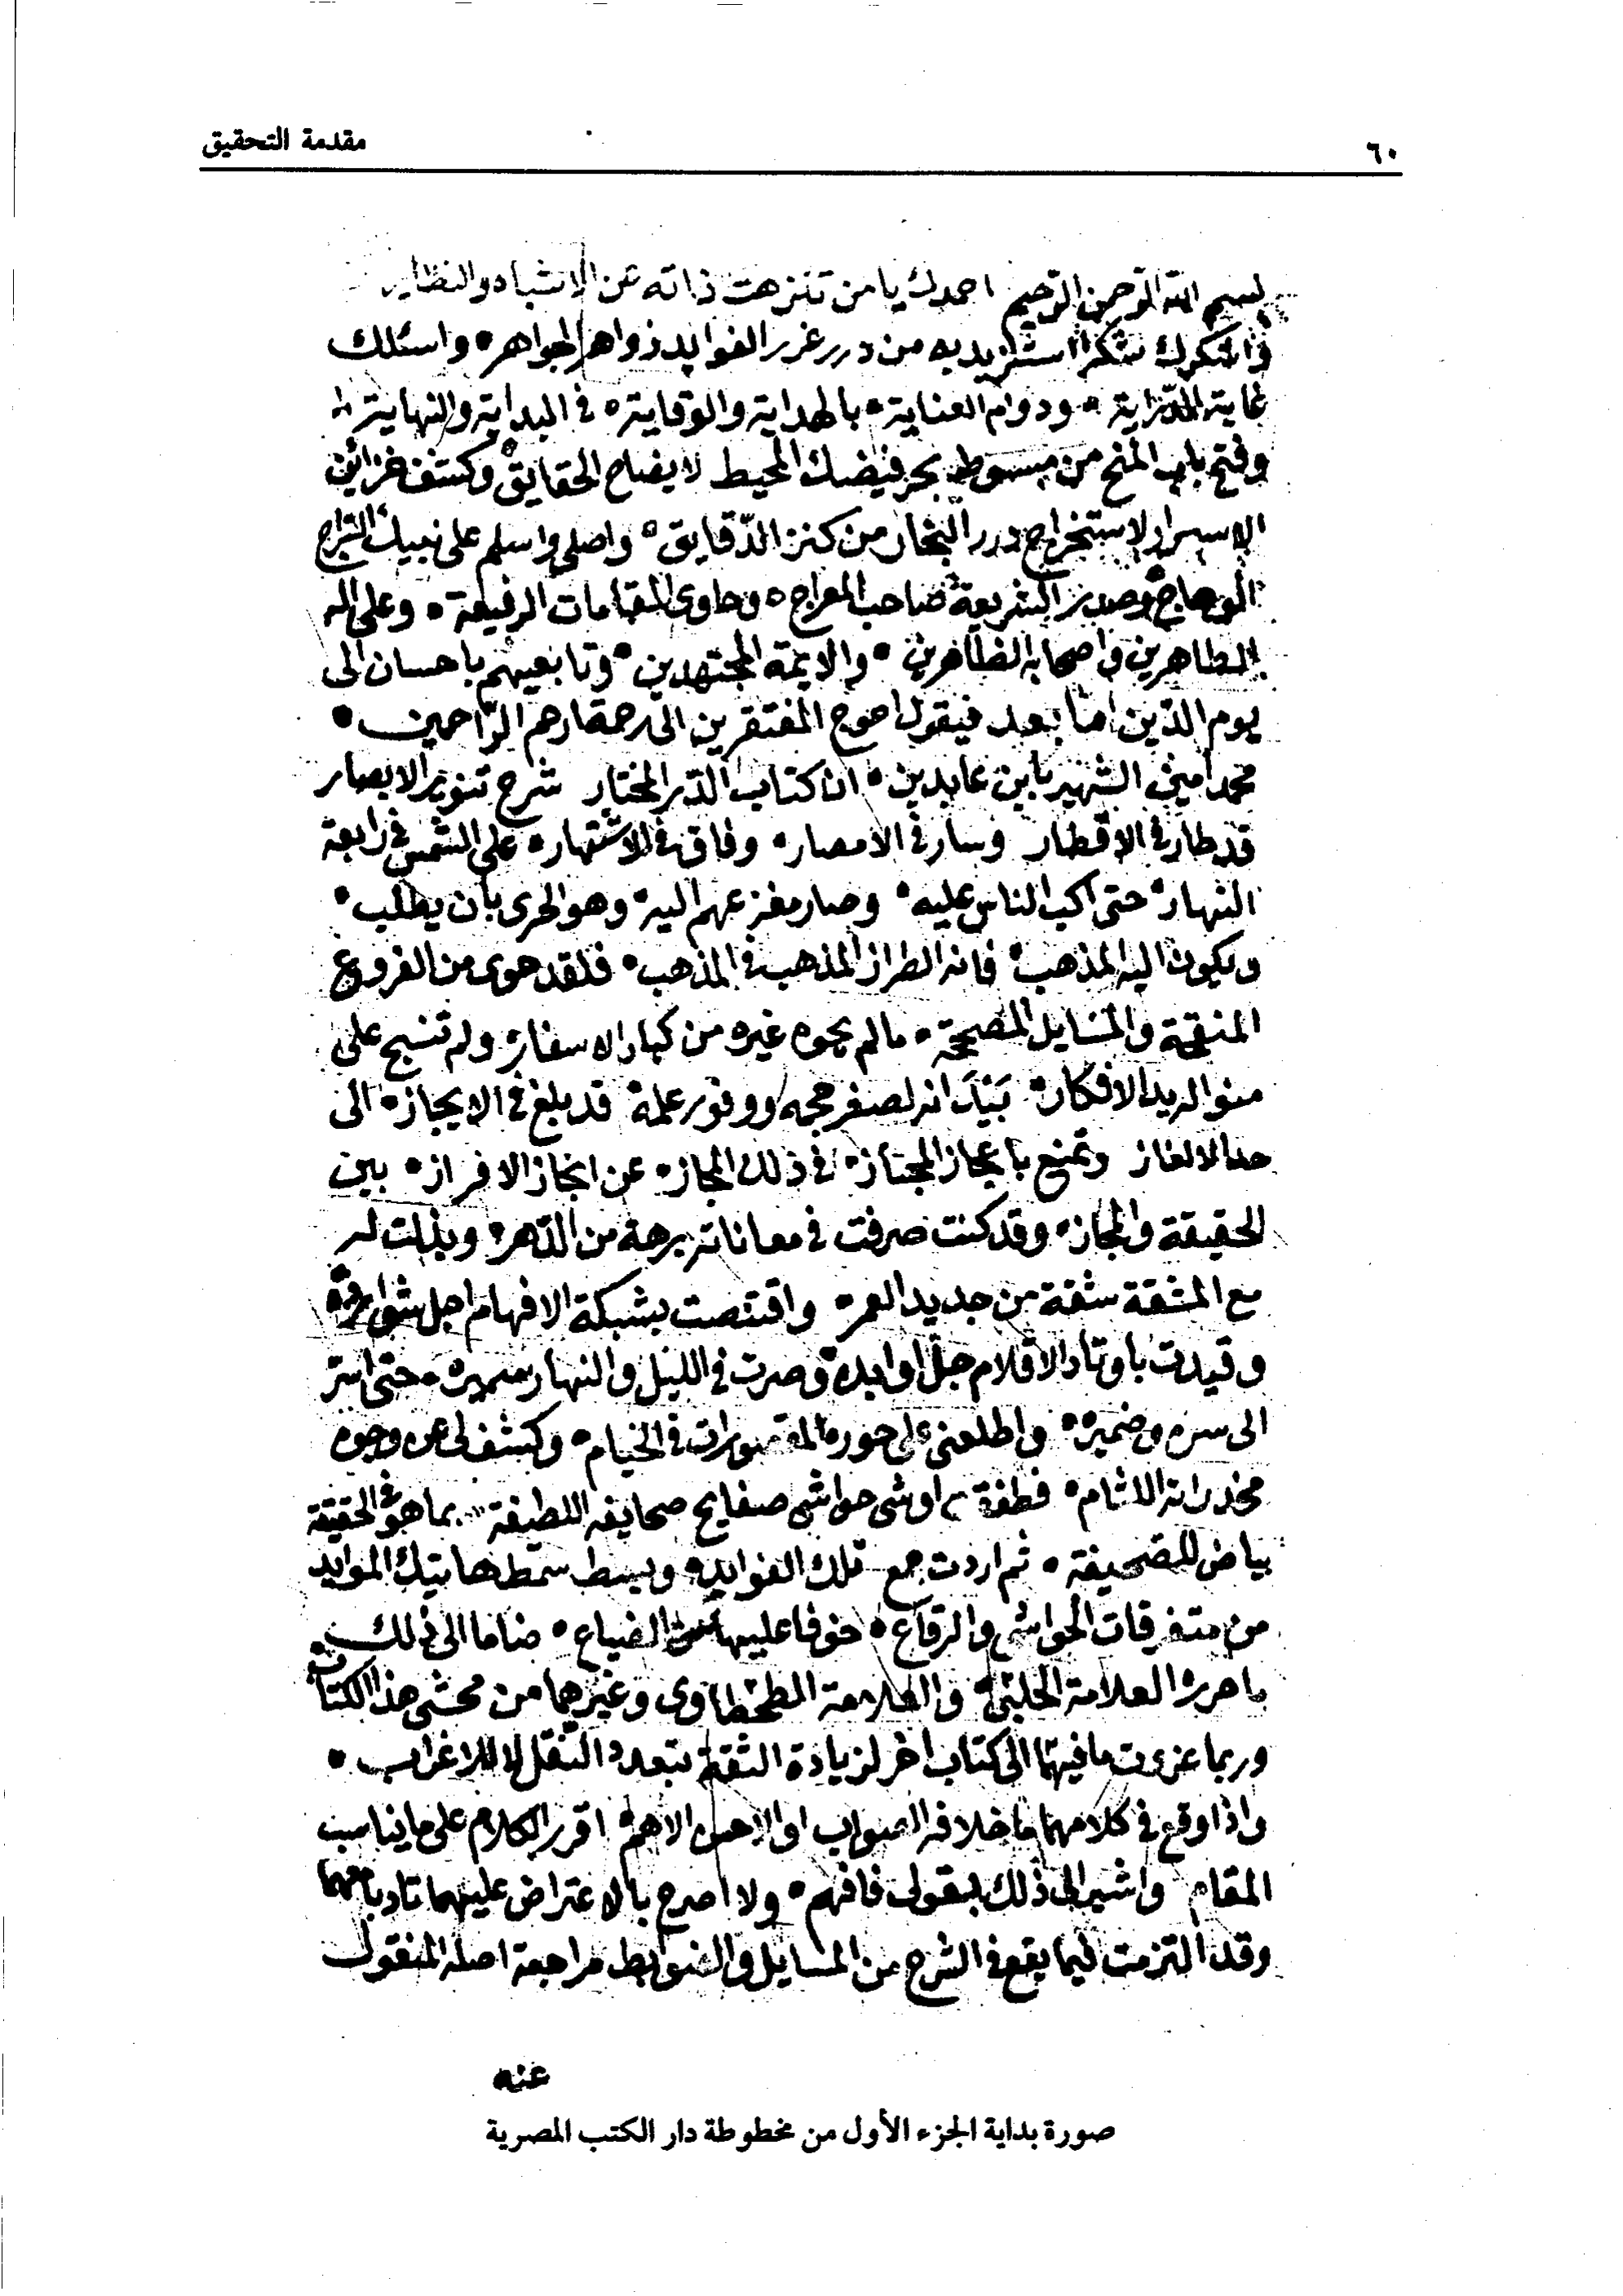 ٦٠ مقدمة التحقيق
بسم الله الرحمن الرحيم احمدك يا من تنزهت ذاته عن الاشباه والنظاير
واشكرك شكرا استزيد به من درر غرر الفوايد زواهر الجواهر • واسئلك
غاية الدّراية • ودوام العناية • بالهداية والوقاية • في البداية والنهاية •
وفتح باب المنح من مبسوط بحر فيضك المحيط لايضاح الحقايق • وكشف خزائن
الاسرار لاستخراج درر البحار من كنز الدّقايق • واصلي واسلم على نبيك السراج
الوهاج • وصدر الشريعة صاحب المعراج • وحاوى المقامات الرفيعة • وعلى اله
الطاهرين واصحابه الظاهرين • والايمة المجتهدين • وتابعيهم باحسان الى
يوم الدّين اما بعد فيقول احوج المفتقرين الى رحمة ارحم الرّاحمين •
محمد امين الشهير بابن عابدين • ان كتاب الدّر المختار شرح تنوير الابصار
قد طار في الاقطار وسار في الامصار • وفاق في الاشتهار • على الشمس في رابعة
النهار • حتى اكب الناس عليه • وصار مفزعهم اليه • وهو الحرى بان يطلب •
ويكون اليه المذهب • فانه الطراز المذهب في المذهب • فلقد حوى من الفروع
المنقحة والمسايل المصححة • مالم يحوه غيره من كبار الاسفار • ولم تنسج على
منواله يد الافكار • بَيْدَ انه لصغر حجمه ووفور علمه قد بلغ في الايجاز • الى
حد الالغاز وتمنع باعجاز المجتاز • في ذلك المجاز • عن انجاز الافراز • بين
الحقيقة والمجاز • وقد كنت صرفت في معاناته برهة من الدّهر • وبذلت له
مع المشقة شقة من جديد العمر • واقتنصت بشبكة الافهام اجل شوارده
وقيدت باوتاد الاقلام جلّ اوابده وصرت في الليل والنهار سميره • حتى اسرّ
الى سره وضميره • واطلعني على حوره المقصورات في الخيام • وكشف لى عن وجوه
مخدراته اللثام • فطفقت اوشى حواشى صفايح صحايفه اللطيفة • بما هو في الحقيقة
بياض للصحيفة • ثم اردت جمع تلك الفوايد • وبسط سمط هاتيك الموايد
من متفرقات الحواشى والرقاع • خوفا عليها من الضياع • ضاما الى ذلك
ما حرره العلامة الحلبي • والعلامة الطحطاوى وغيرهما من محشى هذا الكتاب
وربما عزوت ما فيهما الى كتاب اخر لزيادة الثقة بتعدد النقل لا للاغراب •
واذا وقع في كلامهما ما خلافه الصواب او الاحسن الاهم • اقرر الكلام على ما يناسب
المقام واشير الى ذلك بقولى فافهم • ولا اصرح بالاعتراض عليهما تادبا معهما
وقد التزمت فيما يقع في الشرح من المسايل والضوابط مراجعة اصله المنقول
عنه
صورة بداية الجزء الأول من مخطوطة دار الكتب المصرية